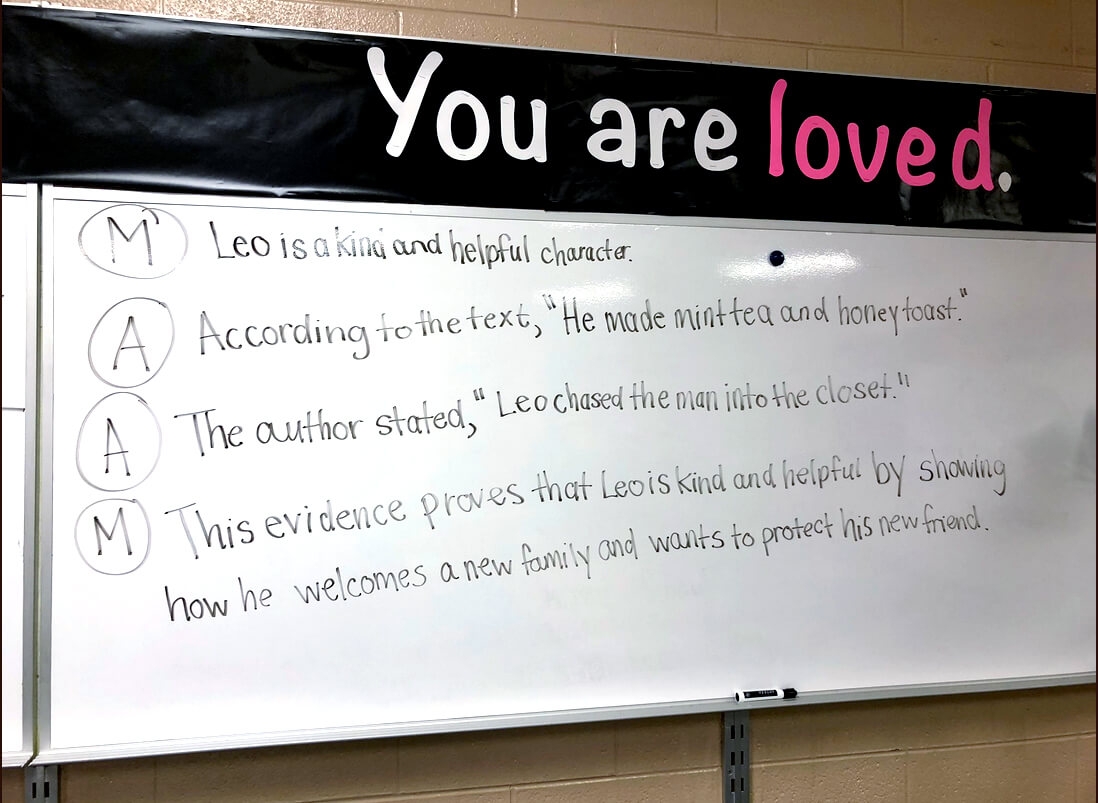 You are loved.
M Leo is a kind and helpful character.
A According to the text, "He made mint tea and honey toast."
A The author stated, "Leo chased the man into the closet."
M This evidence proves that Leo is kind and helpful by showing
how he welcomes a new family and wants to protect his new friend.